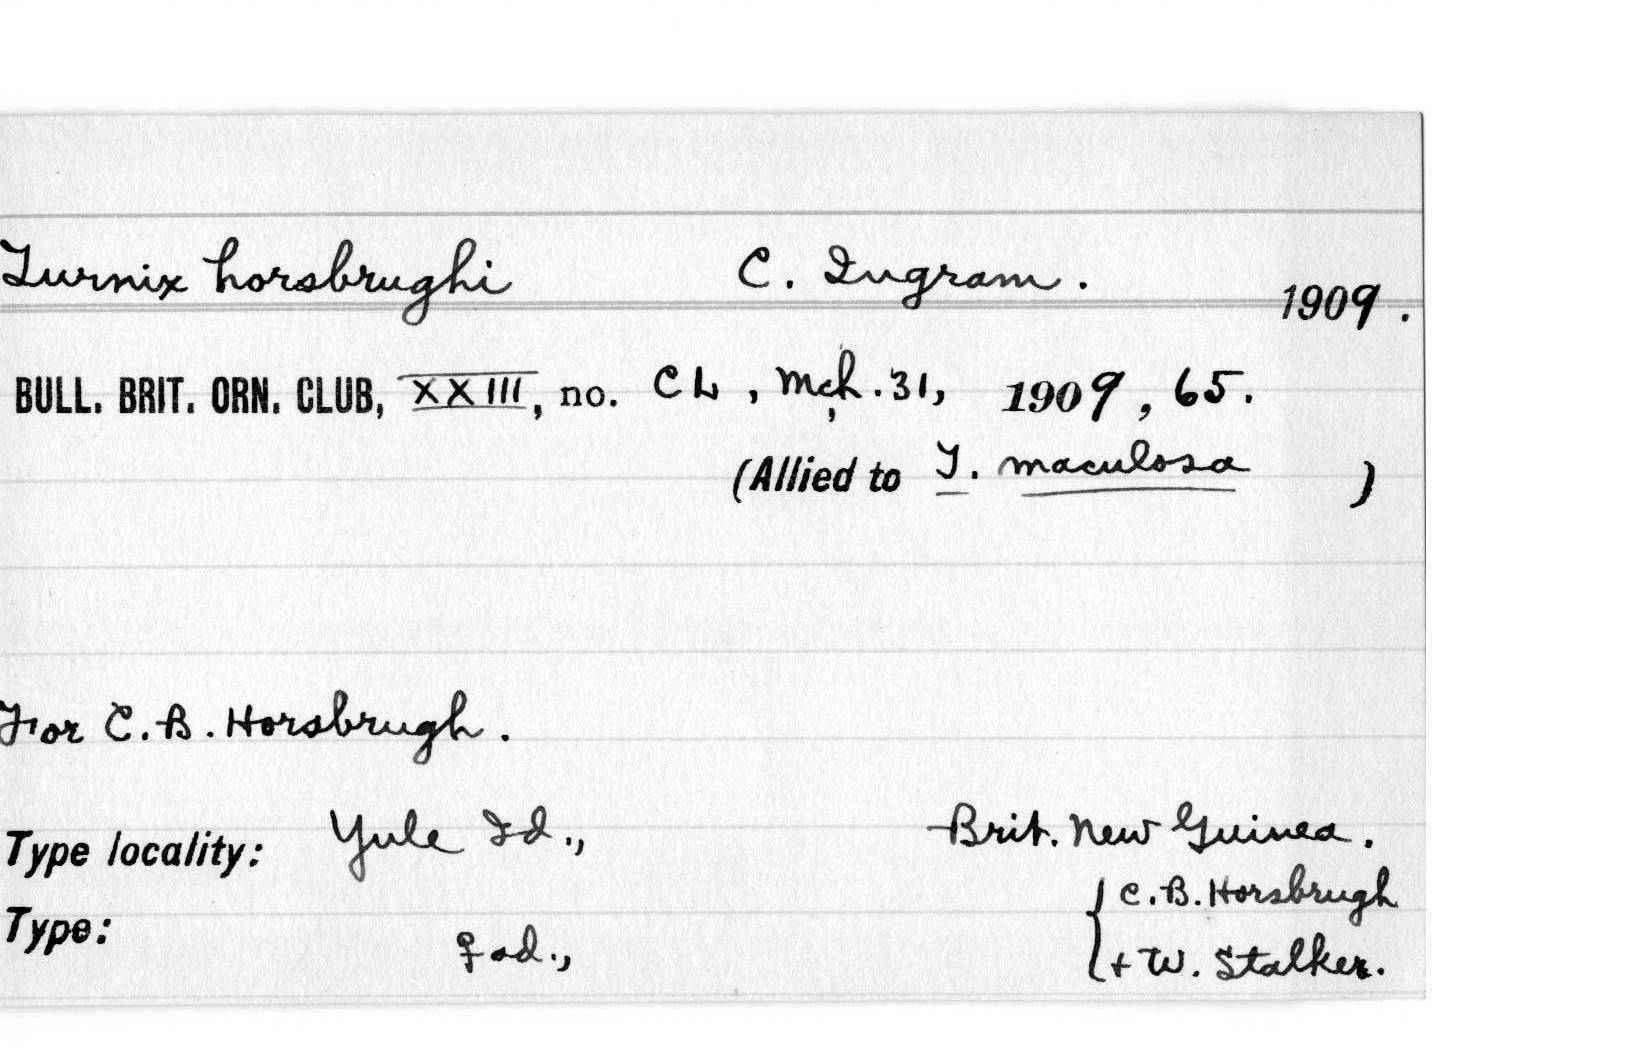 Turnix horsbrughi C. Ingram. 1909.
BULL. BRIT. ORN. CLUB, XXIII, no. CL, Mch. 31, 1909, 65.
(Allied to T. maculosa )
For C. B. Horsbrugh.
Type locality: Yule Id., Brit. New Guinea.
{ C. B. Horsbrugh
Type: ♀ ad., + W. Stalker.